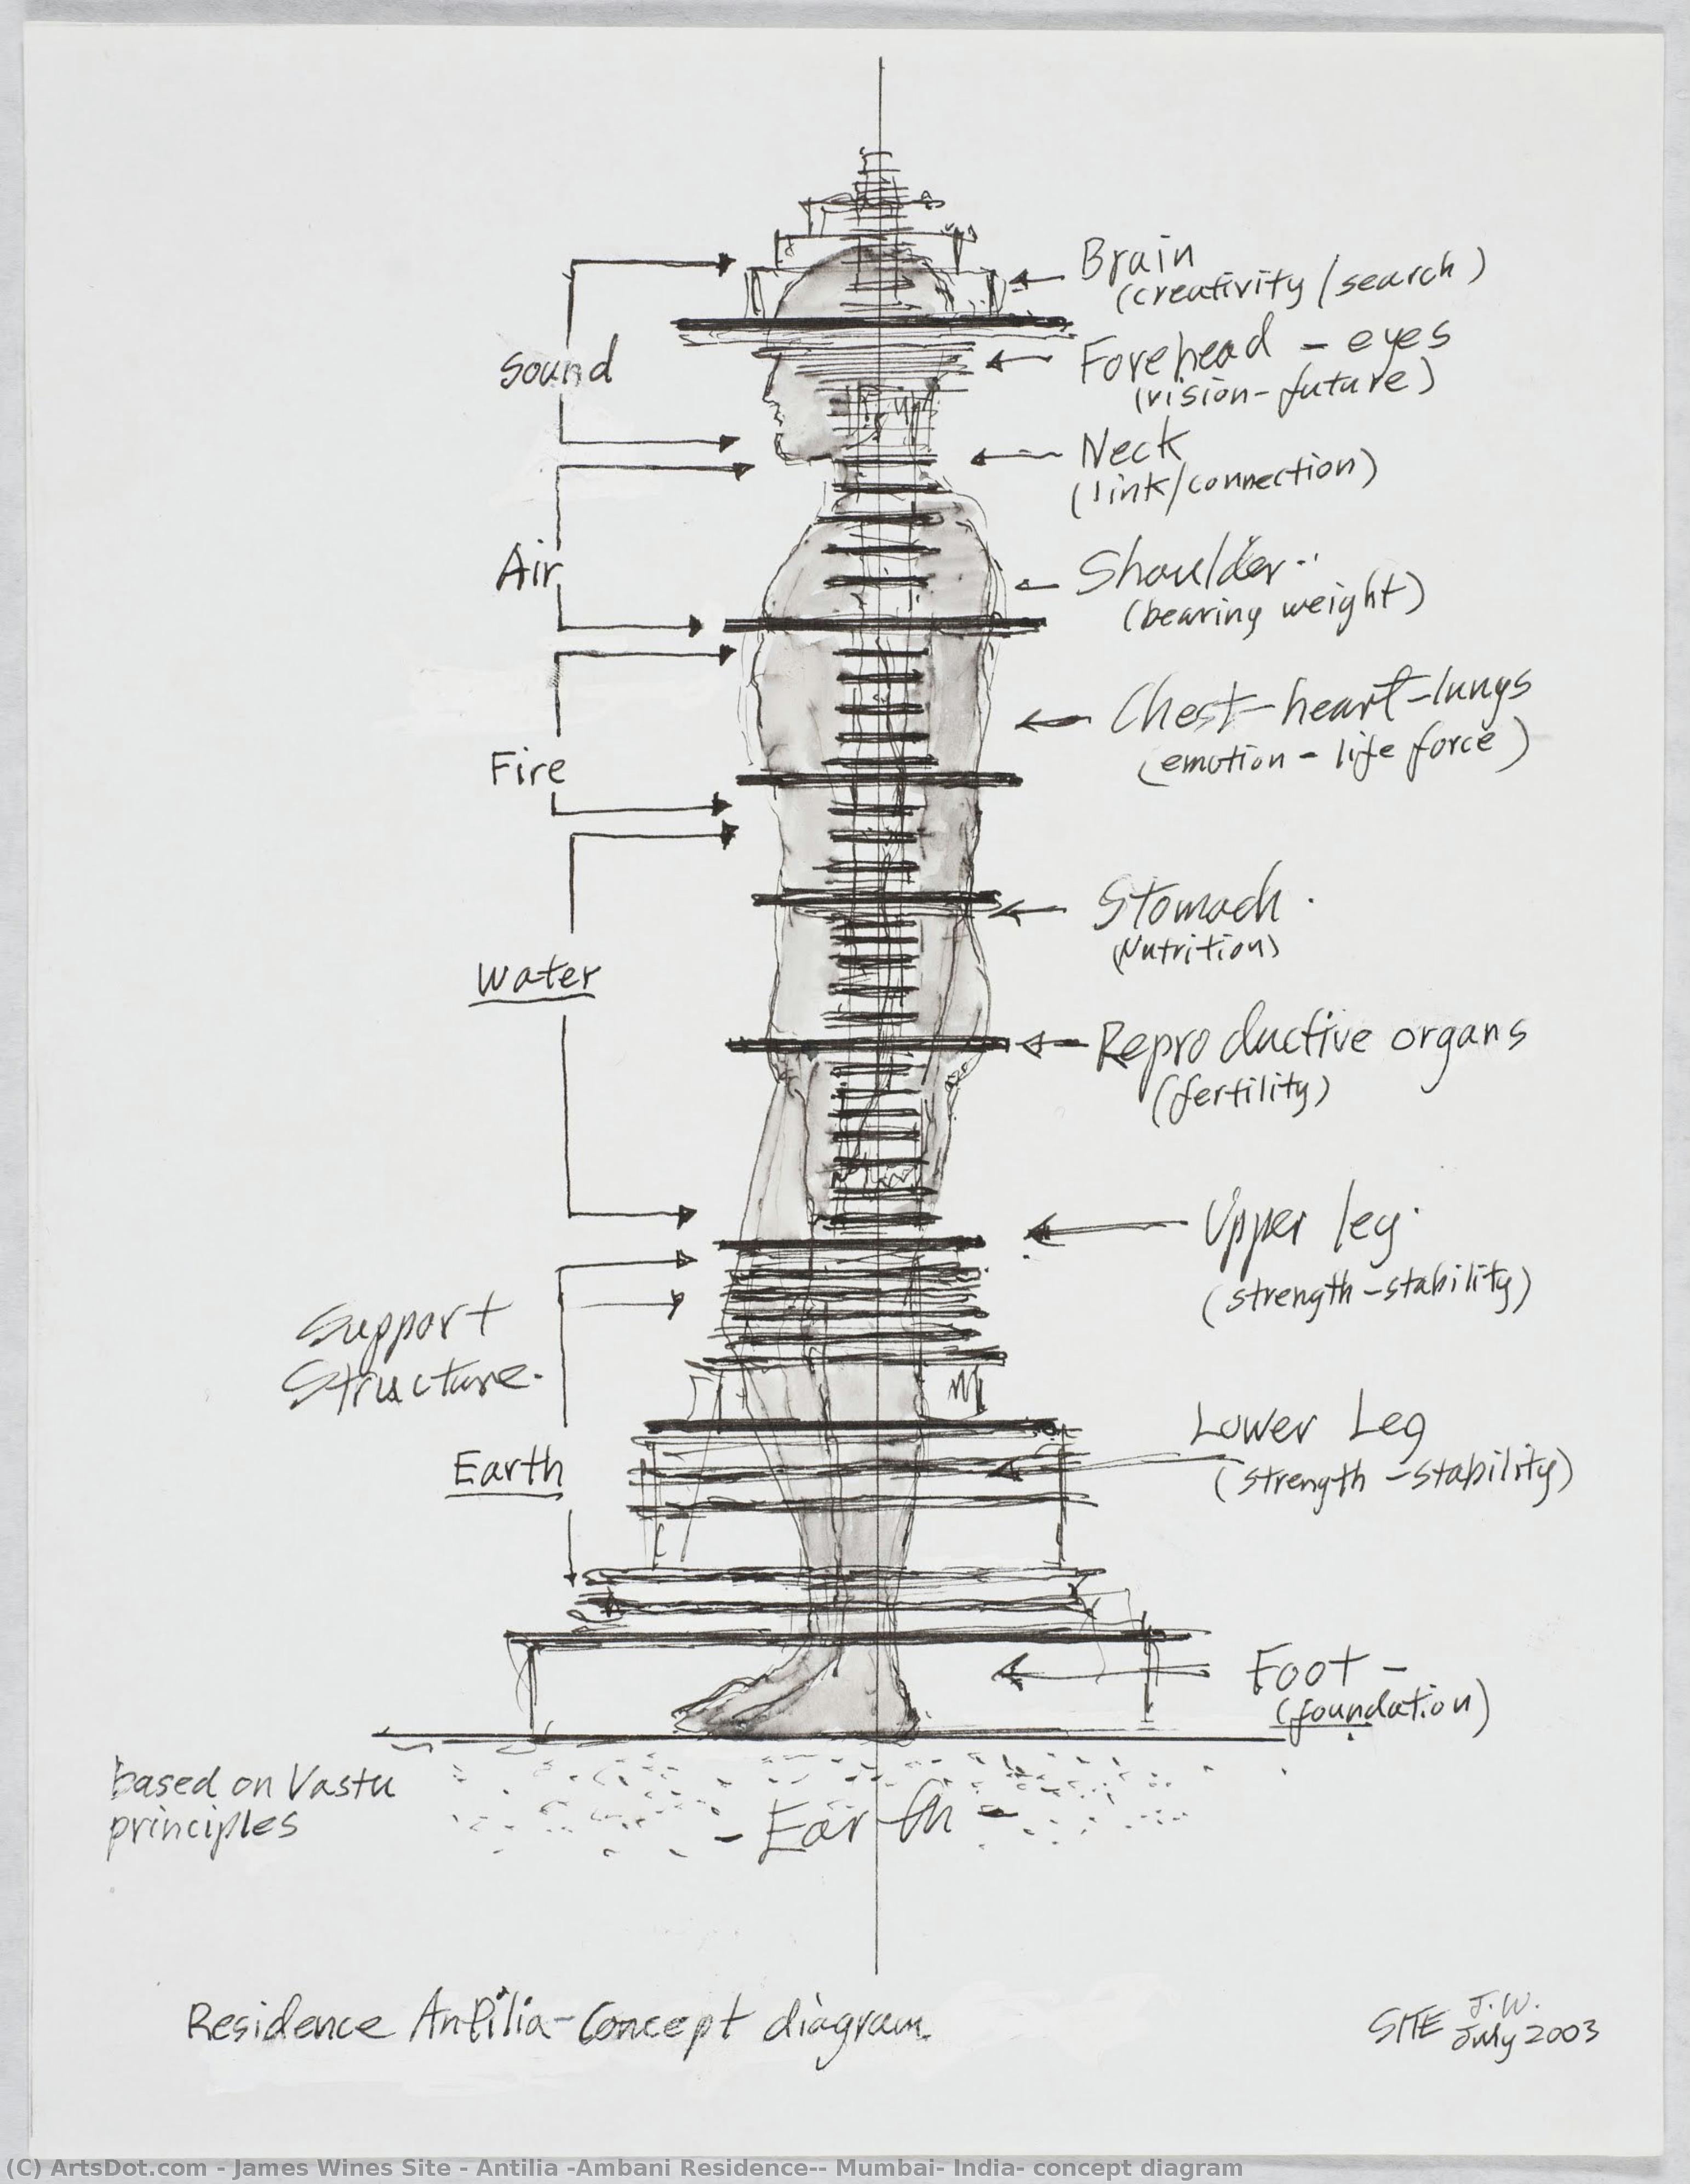 Brain
(creativity/search)
Forehead - eyes
(vision-future)
Sound
Neck
(link/connection)
Air
Shoulder
(bearing weight)
Chest-heart-lungs
(emotion - life force)
Fire
Stomach
(Nutrition)
Water
Reproductive organs
(fertility)
Upper leg
(strength-stability)
Support
Structure.
Lower Leg
(strength-stability)
Earth
Foot -
(foundation)
based on Vastu
principles
- Earth -
Residence Antilia-Concept diagram
SITE J.W.
July 2003
(C) ArtsDot.com - James Wines Site - Antilia -Ambani Residence-- Mumbai- India- concept diagram